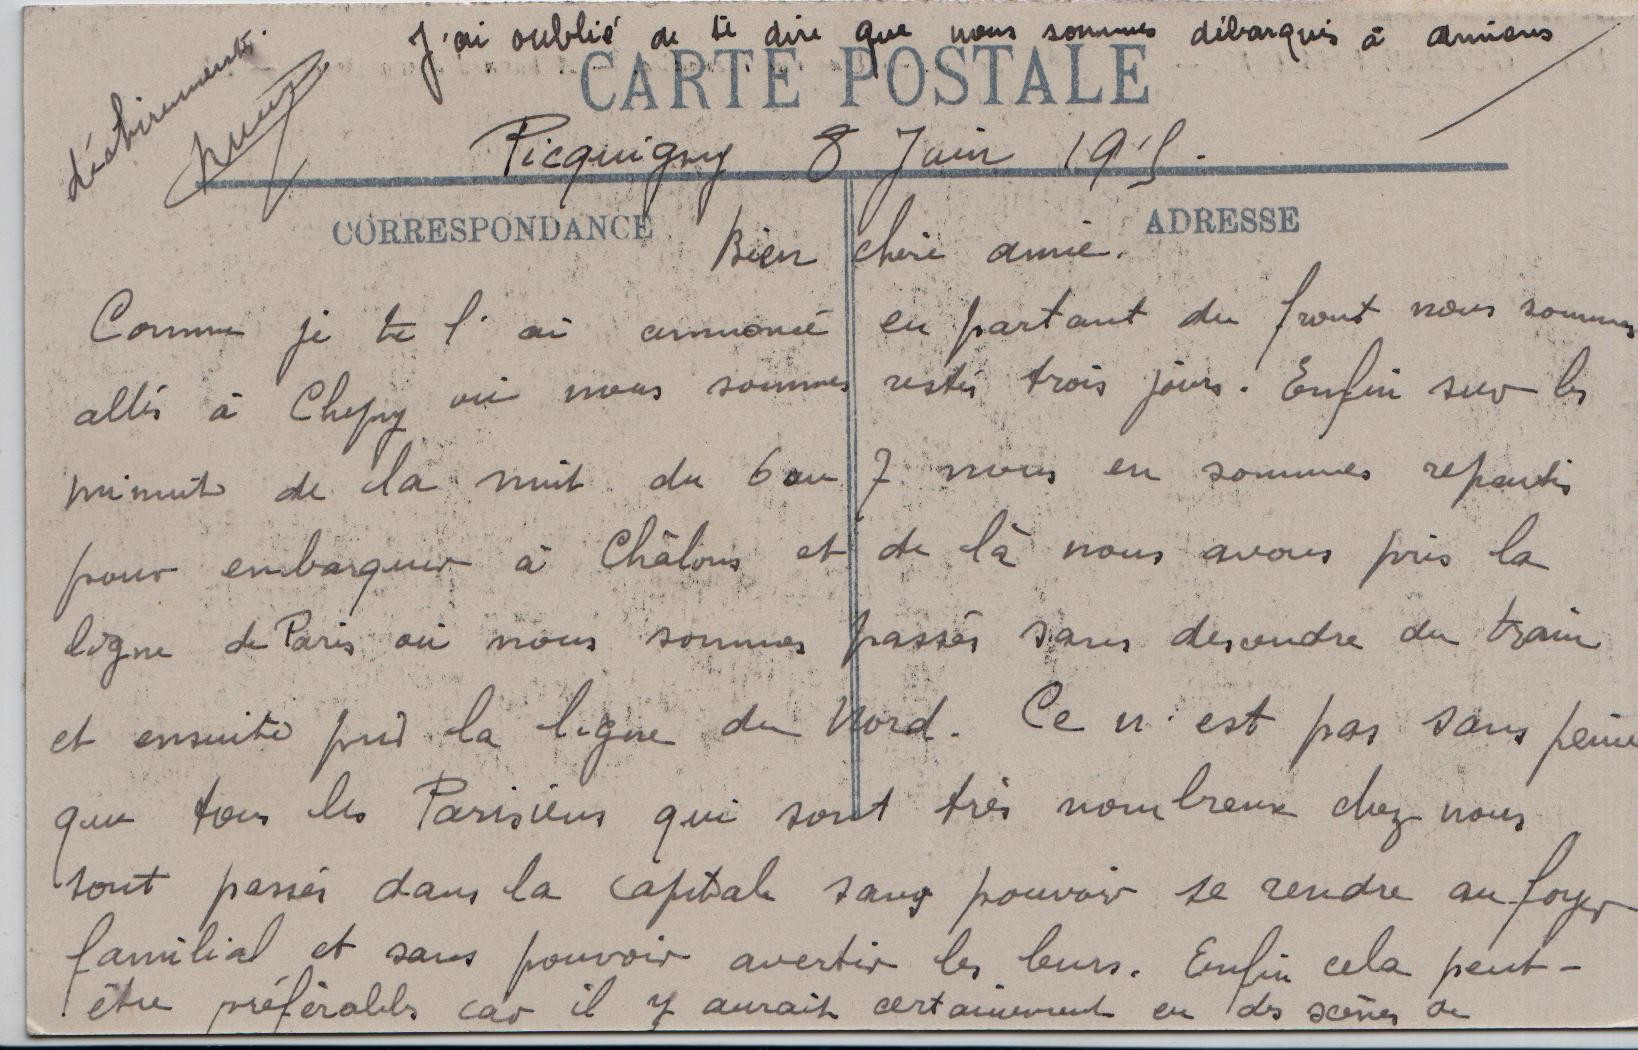 J'ai oublié de te dire que nous sommes débarqués à Amiens
CARTE POSTALE
Picquigny 8 Juin 1915.
CORRESPONDANCE
ADRESSE
Bien chère amie.
Comme je te l'ai annoncé en partant du front nous sommes
allés à Chepy où nous sommes restés trois jours. Enfin sur les
minuit de la nuit du 6 au 7 nous en sommes repartis
pour embarquer à Châlons et de là nous avons pris la
ligne de Paris où nous sommes passés sans descendre du train
et ensuite pris la ligne du Nord. Ce n'est pas sans peine
que tous les Parisiens qui sont très nombreux chez nous
sont passés dans la capitale sans pouvoir se rendre au foyer
familial et sans pouvoir avertir les leurs. Enfin cela peut-
être préférable car il y aurait certainement eu des scènes de
déchirements.